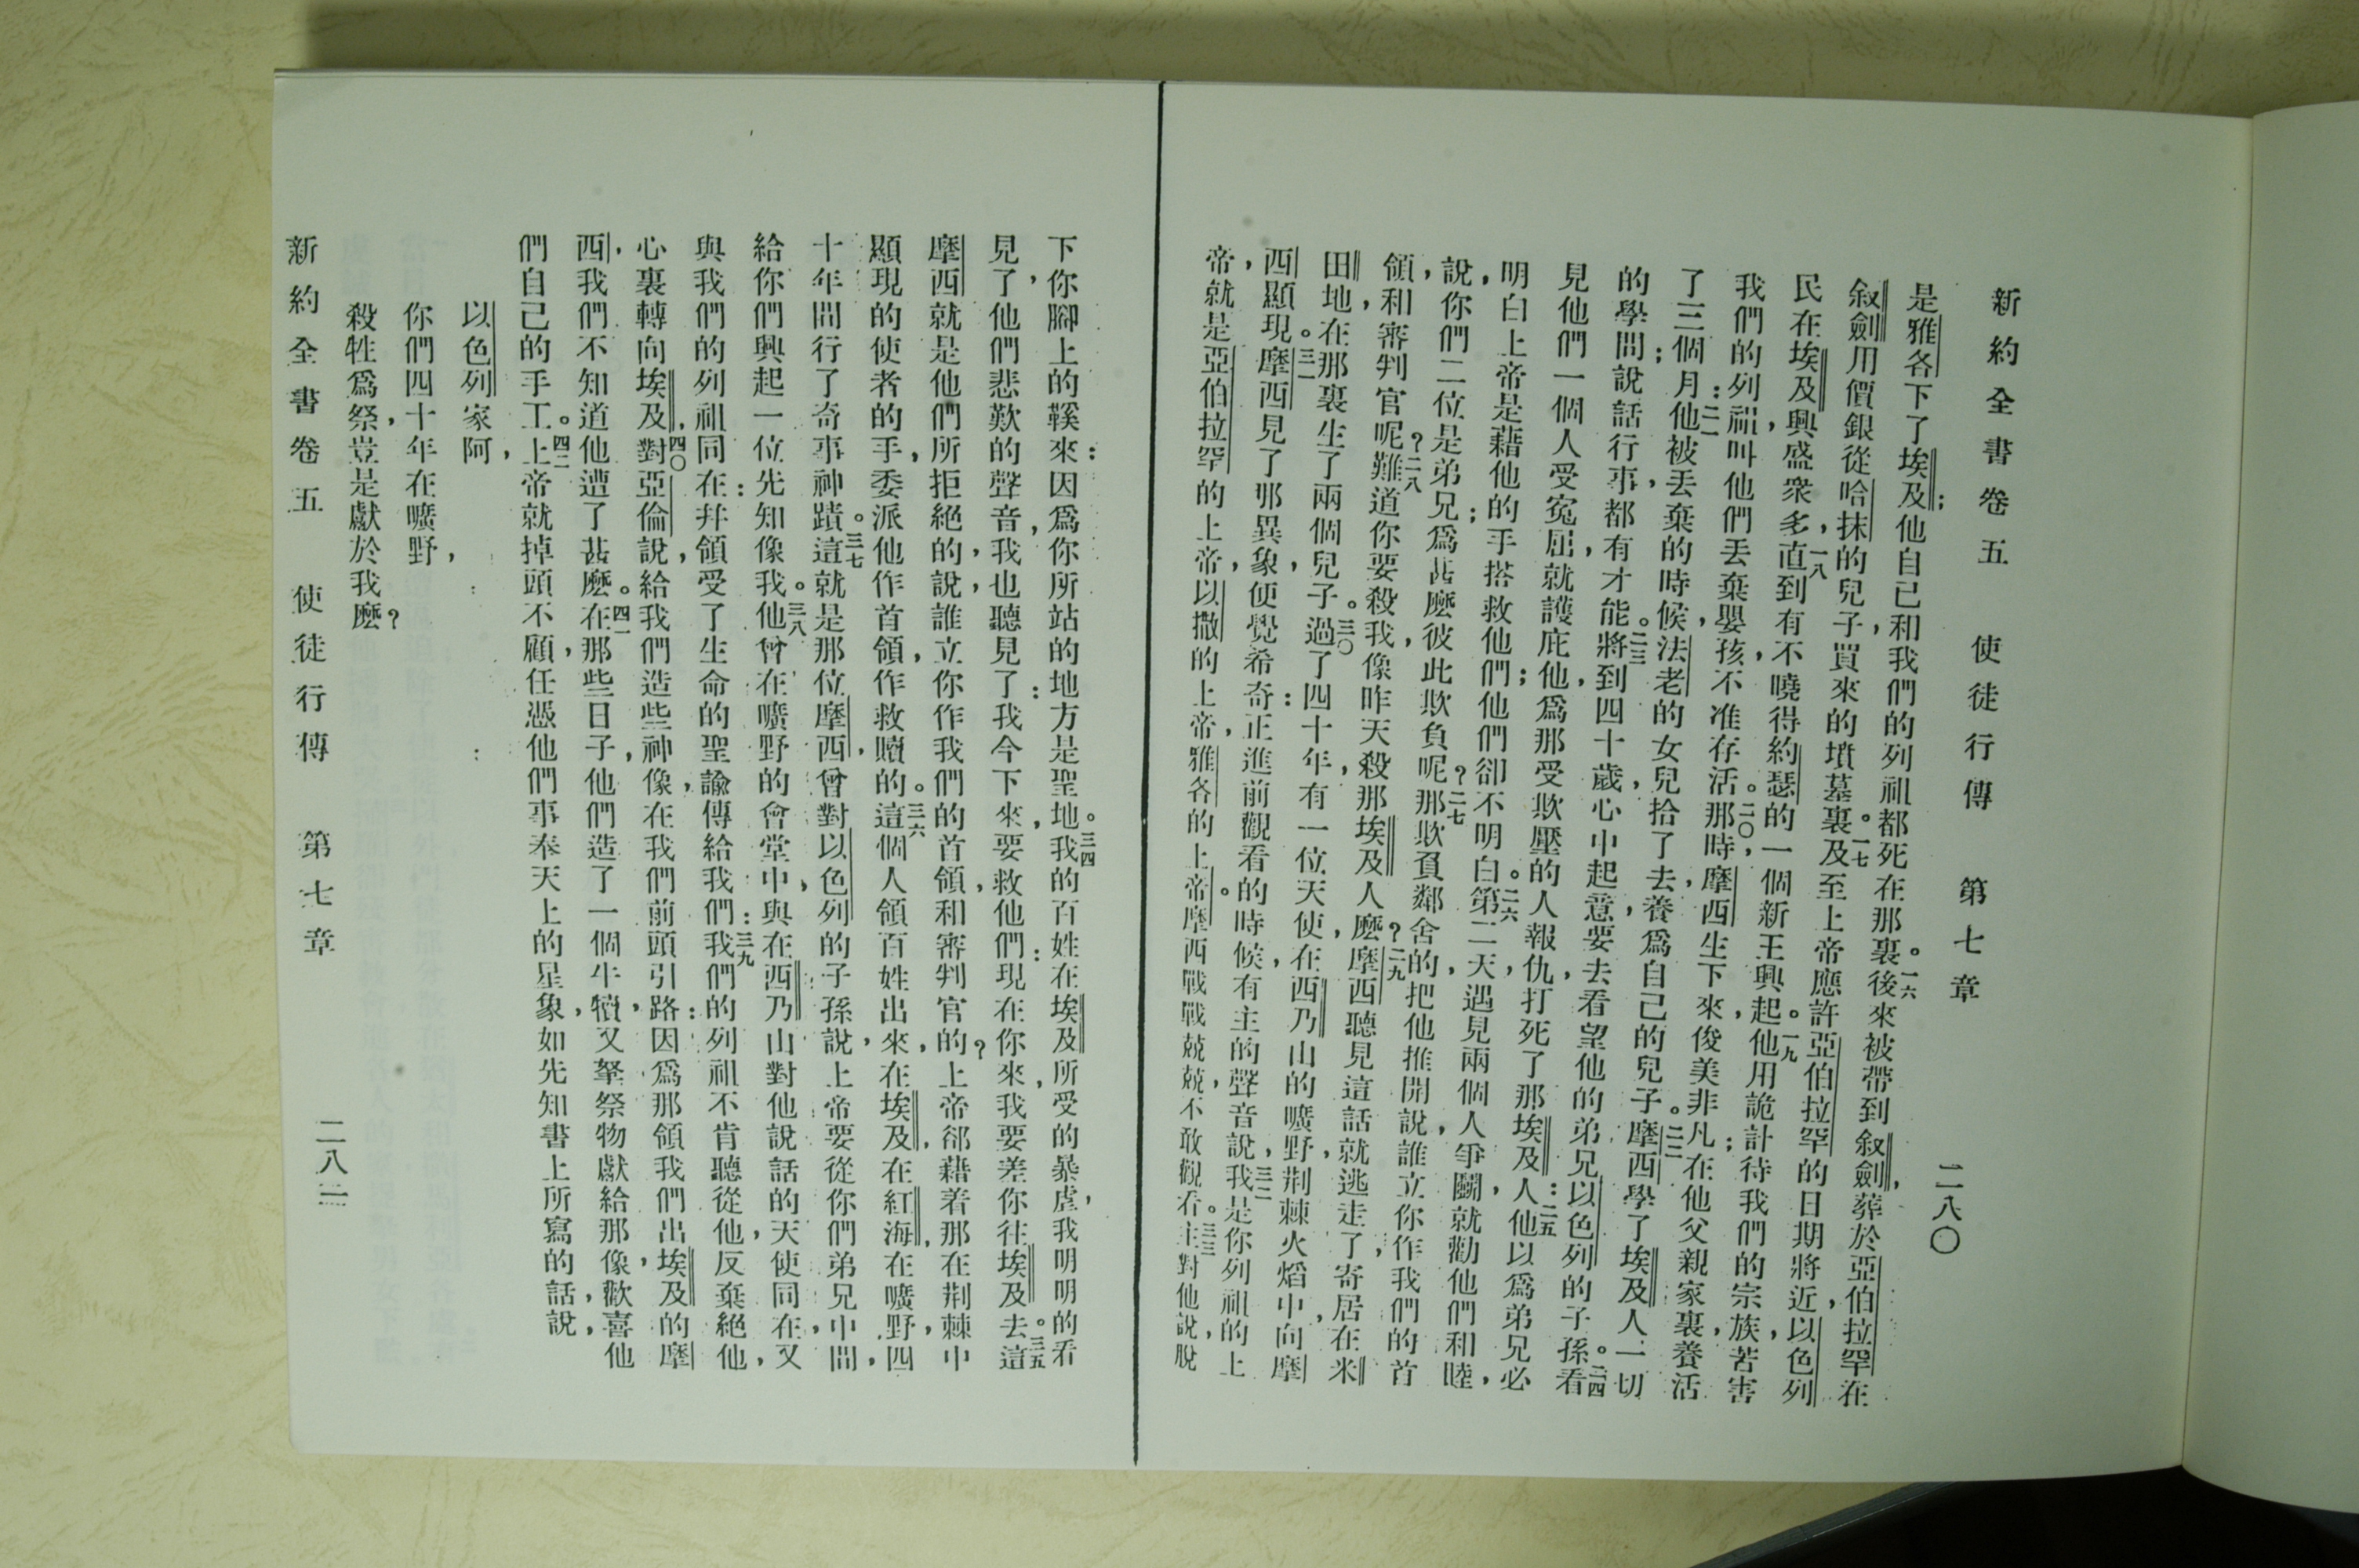 新約全書卷五 使徒行傳 第七章 二八〇
是雅各下了埃及；他自己和我們的列祖都死在那裏。一六後來被帶到叙劍，葬於亞伯拉罕在
叙劍用價銀從哈抹的兒子，買來的墳墓裏。一七及至上帝應許亞伯拉罕的日期將近，以色列
民在埃及興盛衆多，一八直到有不曉得約瑟的一個新王興起。一九他用詭計待我們的宗族，苦害
我們的列祖，叫他們丟棄嬰孩，不准存活。二〇那時，摩西生下來，俊美非凡；在他父親家裏，養活
了三個月：二一他被丟棄的時候，法老的女兒拾了去，養爲自己的兒子。二二摩西學了埃及人一切
的學問；說話行事，都有才能。二三將到四十歲，心中起意，要去看望他的弟兄以色列的子孫。二四看
見他們一個人受寃屈，就護庇他，爲那受欺壓的人報仇，打死了那埃及人：二五他以爲弟兄必
明白上帝是藉他的手搭救他們；他們卻不明白。二六第二天，遇見兩個人爭鬭，就勸他們和睦，
說，你們二位是弟兄；爲甚麼彼此欺負呢？二七那欺負鄰舍的，把他推開，說，誰立你作我們的首
領，和審判官呢？二八難道你要殺我，像昨天殺那埃及人麼？二九摩西聽見這話，就逃走了，寄居在米
田地，在那裏生了兩個兒子。三〇過了四十年，有一位天使，在西乃山的曠野，荆棘火熖中，向摩
西顯現。三一摩西見了那異象，便覺希奇：正進前觀看的時候，有主的聲音說，三二我是你列祖的上
帝，就是亞伯拉罕的上帝，以撒的上帝，雅各的上帝。摩西戰戰兢兢，不敢觀看。三三主對他說，脫
下你腳上的鞵來：因爲你所站的地方是聖地。三四我的百姓在埃及所受的暴虐，我明明的看
見了，他們悲歎的聲音，我也聽見了：我今下來，要救他們：現在你來，我要差你往埃及去。三五這
摩西就是他們所拒絕的，說，誰立你作我們的首領，和審判官的？上帝卻藉着那在荆棘中
顯現的使者的手，委派他作首領，作救贖的。三六這個人領百姓出來，在埃及，在紅海，在曠野，四
十年間行了奇事神蹟。三七這就是那位摩西，曾對以色列的子孫說，上帝要從你們弟兄中間，
給你們興起一位先知像我。三八他曾在曠野的會堂中，與在西乃山對他說話的天使同在，又
與我們的列祖同在：幷領受了生命的聖諭傳給我們：三九我們的列祖不肯聽從他，反棄絕他，
心裏轉向埃及，四〇對亞倫說，給我們造些神像，在我們前頭引路：因爲那領我們出埃及的摩
西，我們不知道他遭了甚麼。四一在那些日子，他們造了一個牛犢，又拏祭物獻給那像，歡喜他
們自己的手工。四二上帝就掉頭不顧，任憑他們事奉天上的星象，如先知書上所寫的話說，
以色列家阿，
你們四十年在曠野，
殺牲爲祭，豈是獻於我麼？
新約全書卷五 使徒行傳 第七章